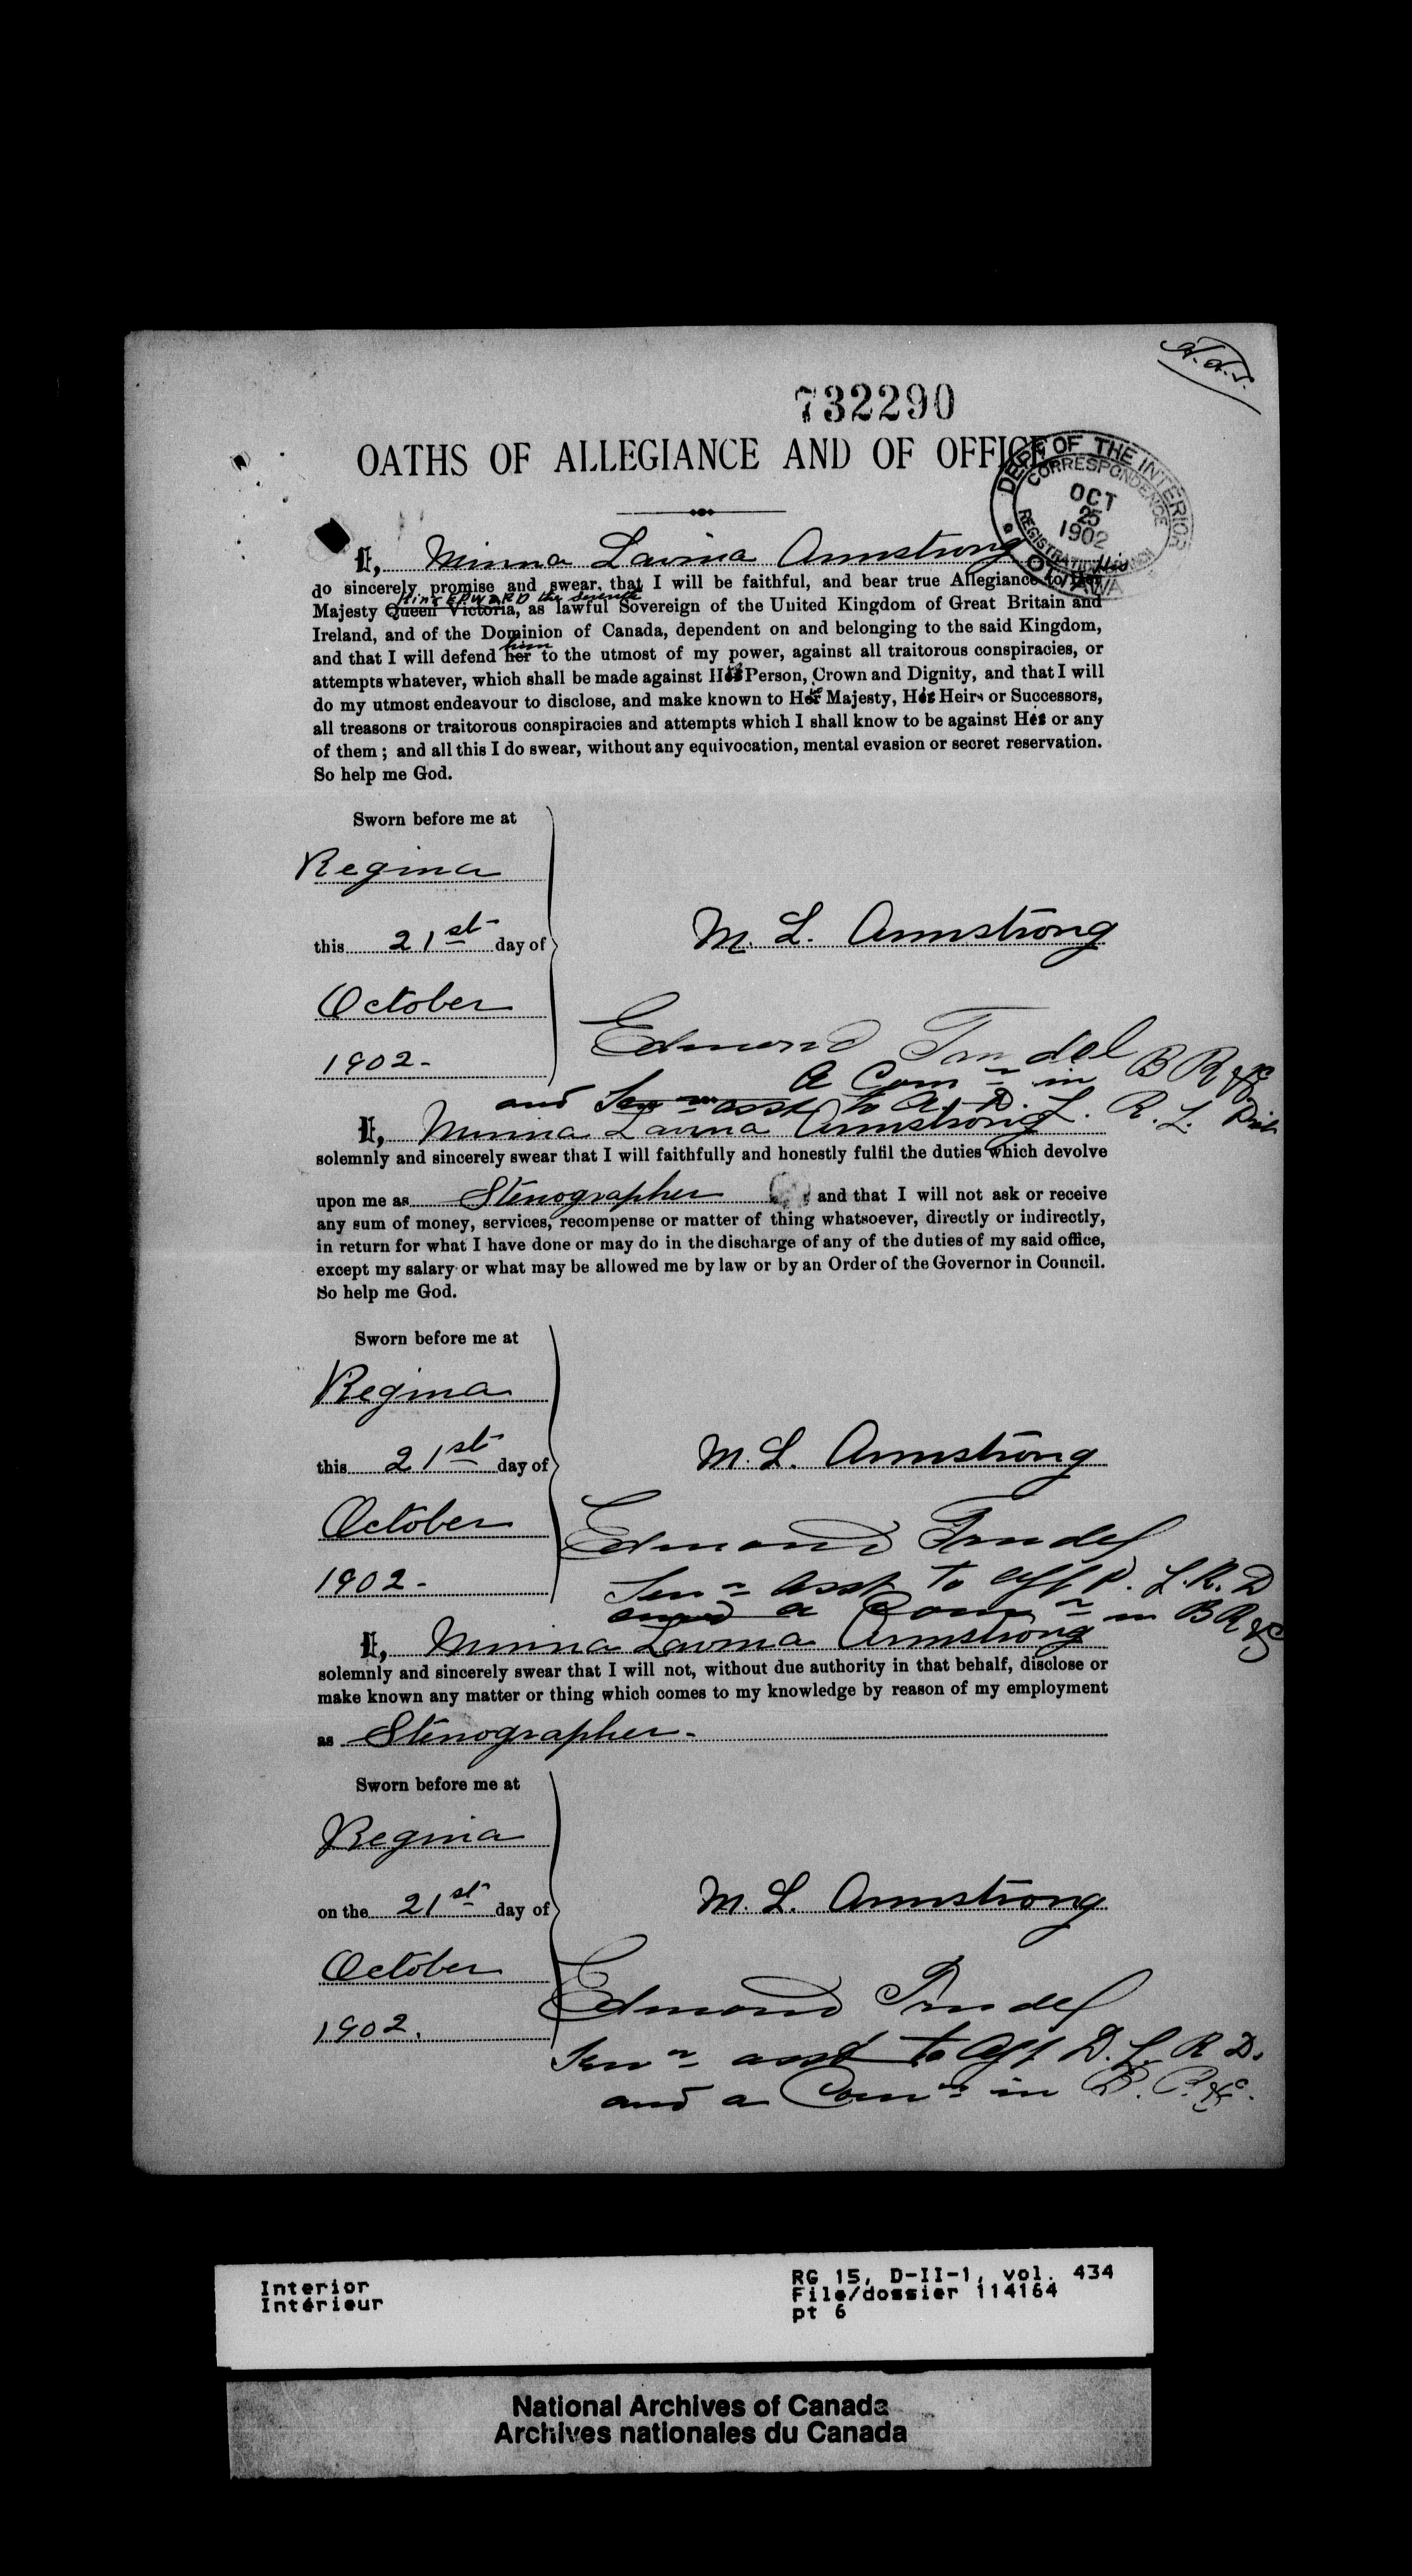 732290
OATHS OF ALLEGIANCE AND OF OFFICE
DEPT OF THE INTERIOR
CORRESPONDENCE
OCT
25
1902
REGISTRATION BRANCH
OTTAWA
I, Minna Lavina Armstrong
do sincerely promise and swear, that I will be faithful, and bear true Allegiance to Her His
King EDWARD the seventh
Majesty Queen Victoria, as lawful Sovereign of the United Kingdom of Great Britain and
Ireland, and of the Dominion of Canada, dependent on and belonging to the said Kingdom,
him
and that I will defend her to the utmost of my power, against all traitorous conspiracies, or
attempts whatever, which shall be made against His Person, Crown and Dignity, and that I will
do my utmost endeavour to disclose, and make known to His Majesty, His Heirs or Successors,
all treasons or traitorous conspiracies and attempts which I shall know to be against His or any
of them; and all this I do swear, without any equivocation, mental evasion or secret reservation.
So help me God.
Sworn before me at
Regina
this 21st day of
October
1902-
M. L. Armstrong
Edmond Trudel
A Comn in B R &c
and Senr asst to A. D. L. R. L.
I, Minna Lavina Armstrong
solemnly and sincerely swear that I will faithfully and honestly fulfil the duties which devolve
upon me as Stenographer and that I will not ask or receive
any sum of money, services, recompense or matter of thing whatsoever, directly or indirectly,
in return for what I have done or may do in the discharge of any of the duties of my said office,
except my salary or what may be allowed me by law or by an Order of the Governor in Council.
So help me God.
Sworn before me at
Regina
this 21st day of
October
1902-
M. L. Armstrong
Edmond Trudel
Senr asst to Agt D. L. R. D
and a Comr in B R &c
I, Minna Lavina Armstrong
solemnly and sincerely swear that I will not, without due authority in that behalf, disclose or
make known any matter or thing which comes to my knowledge by reason of my employment
as Stenographer-
Sworn before me at
Regina
on the 21st day of
October
1902.
M. L. Armstrong
Edmond Trudel
Senr asst to Agt D. L. R D.
and a Comr in B. R. &c.
Interior
Intérieur
RG 15, D-II-1, vol. 434
File/dossier 114164
pt 6
National Archives of Canada
Archives nationales du Canada